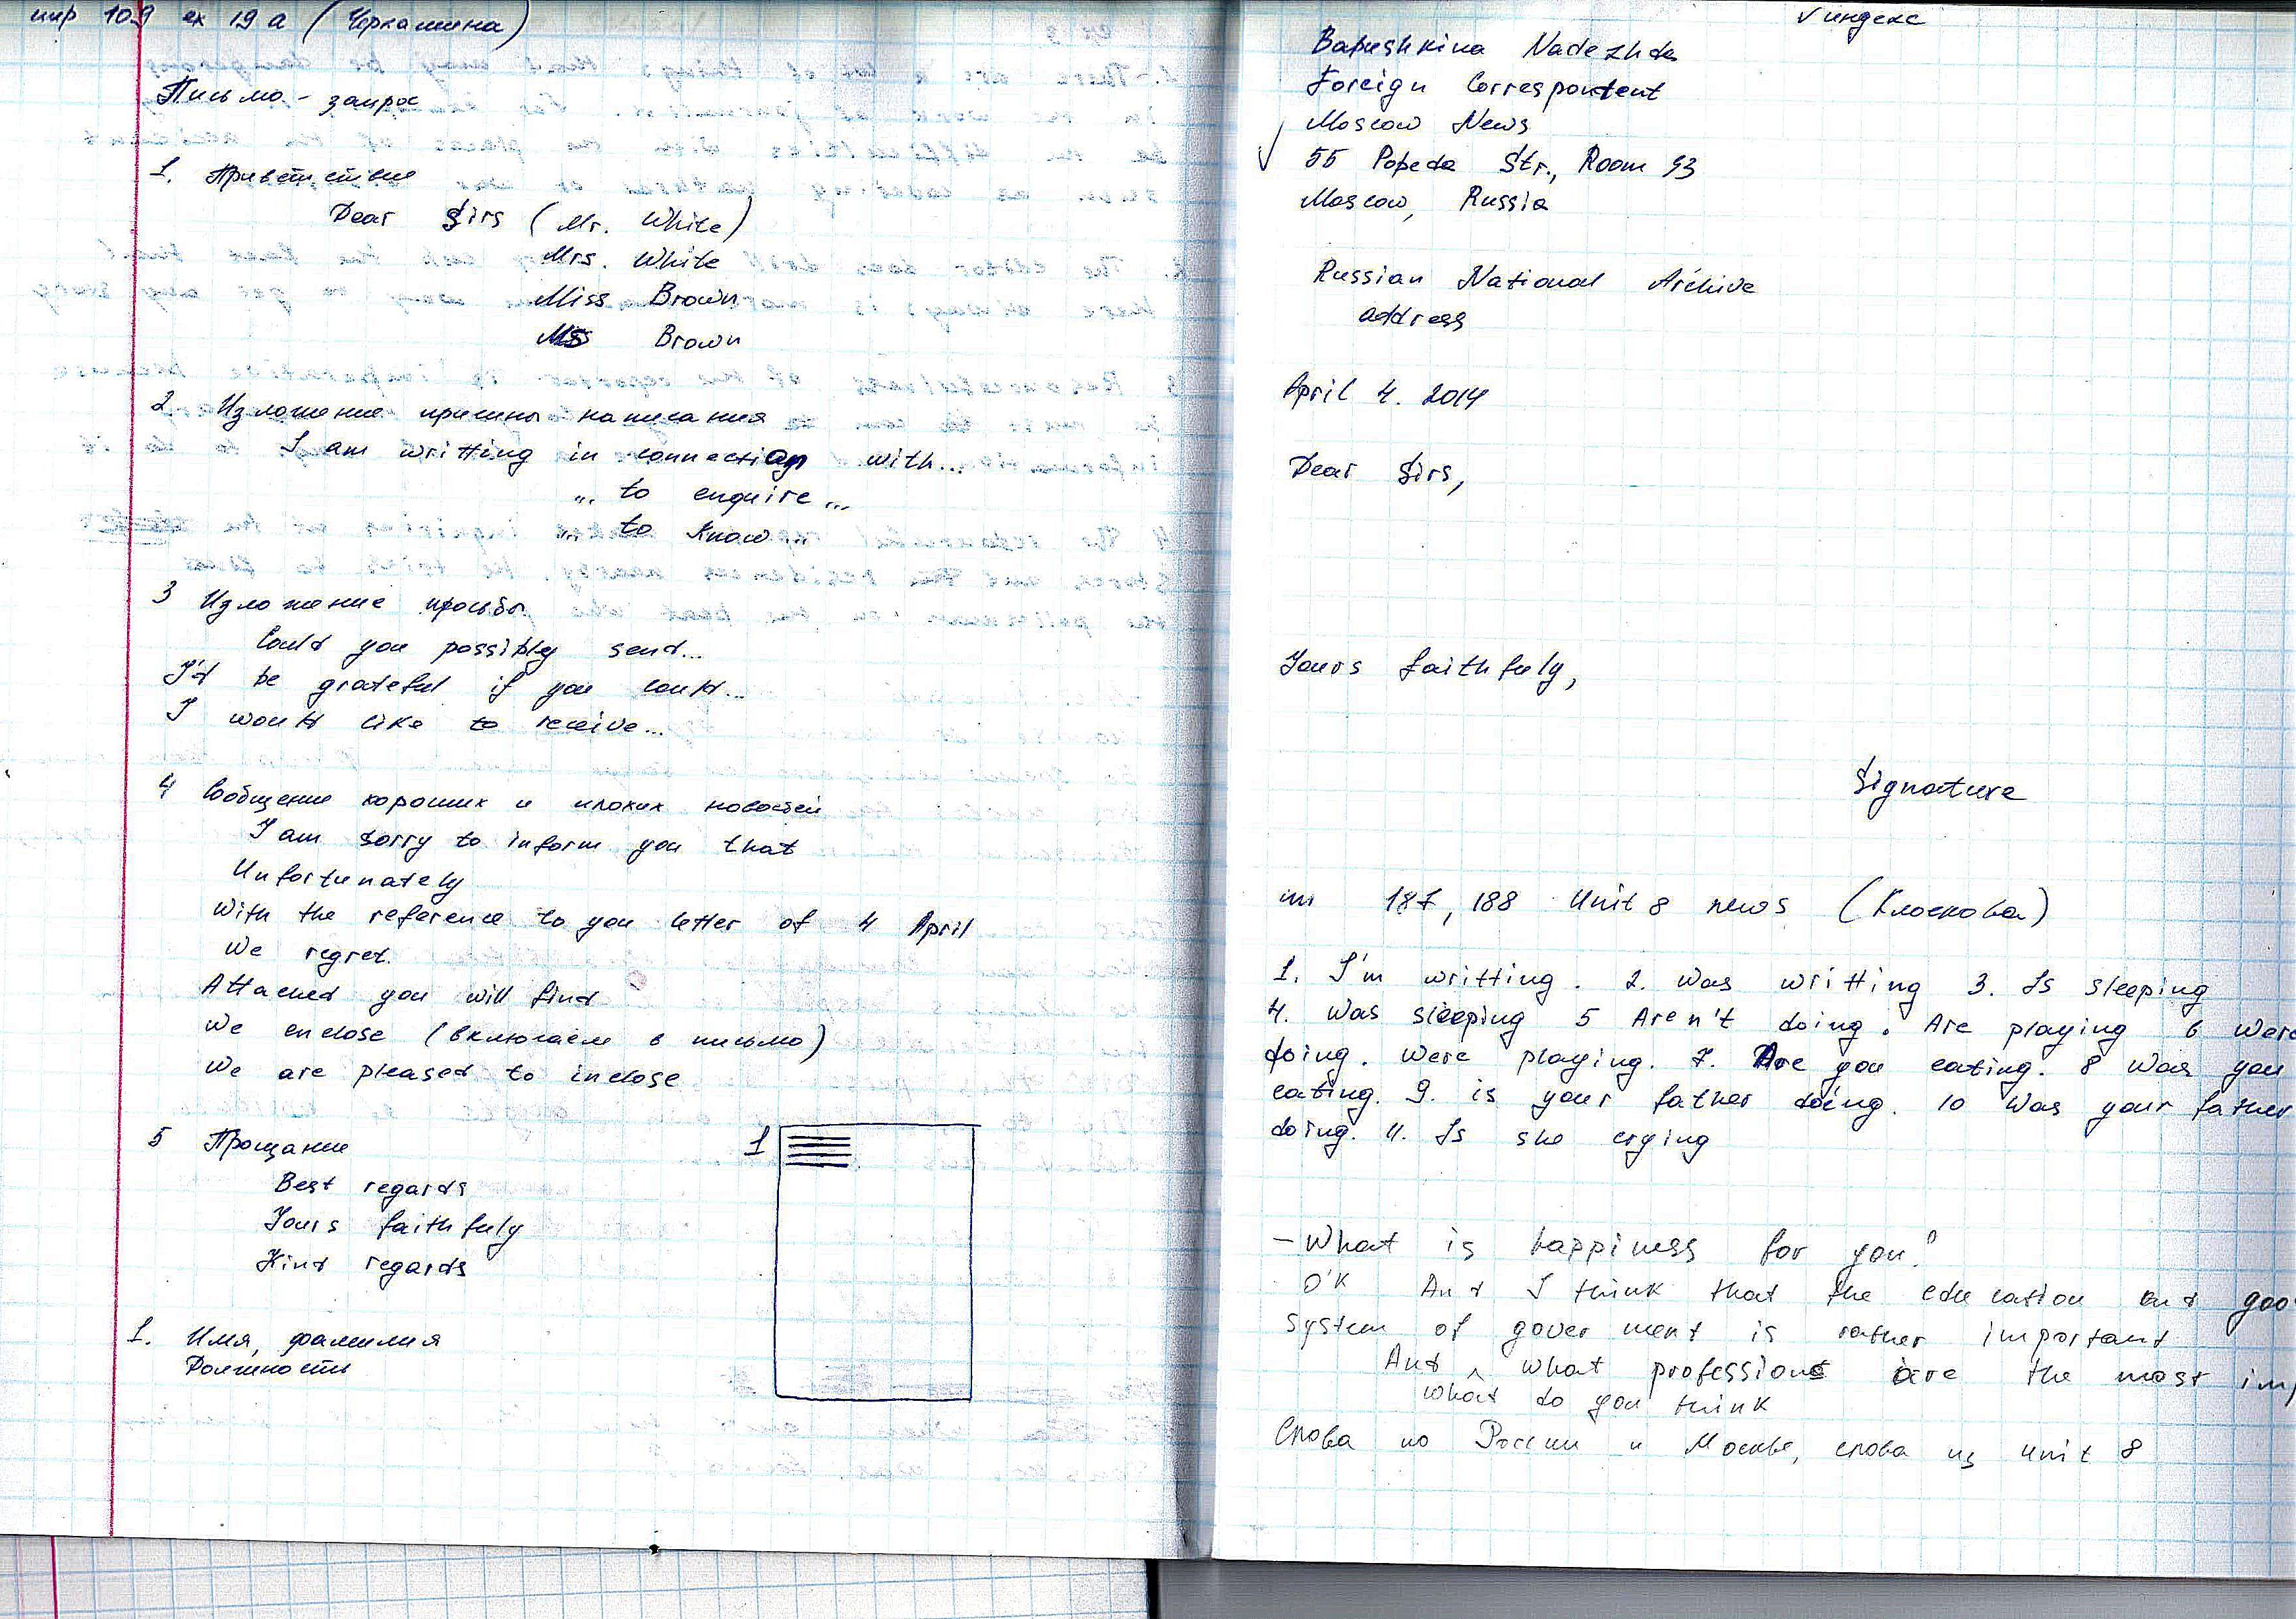 стр 109 ex 19 a (Черкашина)
Письмо - запрос
1. Приветствие
Dear Sirs (Mr. White)
Mrs. White
Miss Brown
Ms Brown
2 Изложение причины написания
I am writting in connection with...
„. to enquire...
„. to know...
3 Изложение просьбы
Could you possibly send...
I'd be grateful if you could...
I would like to receive...
4 Сообщение хороших и плохих новостей
I am sorry to inform you that
Unfortunately
With the reference to you letter of 4 April
We regret.
Attached you will find
We enclose (включаем в письмо)
We are pleased to inclose
5 Прощание
Best regards
Yours faithfuly
Kind regards
1
1. Имя, фамилия
Должность
√ индекс
Babushkina Nadezhda
Foreign Correspontent
Moscow News
√ 55 Pobeda Str., Room 93
Moscow, Russia
Russian National Archive
address
April 4. 2014
Dear Sirs,
Yours faithfuly,
Signature
187, 188 Unit 8 news (Клоскова)
1. I'm writting. 2. Was writting 3. Is sleeping
4. Was sleeping 5 Aren't doing. Are playing 6 were
doing. were playing. 7. Are you eating. 8 Was you
eating. 9. is your father doing. 10 Was your father
doing. 11. Is she crying
- What is happiness for you?
O'K And I think that the education and goo
system of goverment is rather important
And ^ what professions are the most imp
what do you think
Слова по России и Москве, слова из unit 8